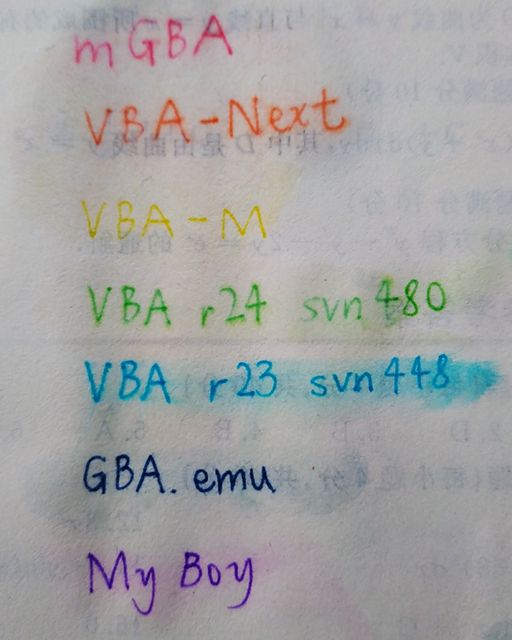 mGBA
VBA-Next
VBA-M
VBA r24 svn480
VBA r23 svn448
GBA.emu
My Boy